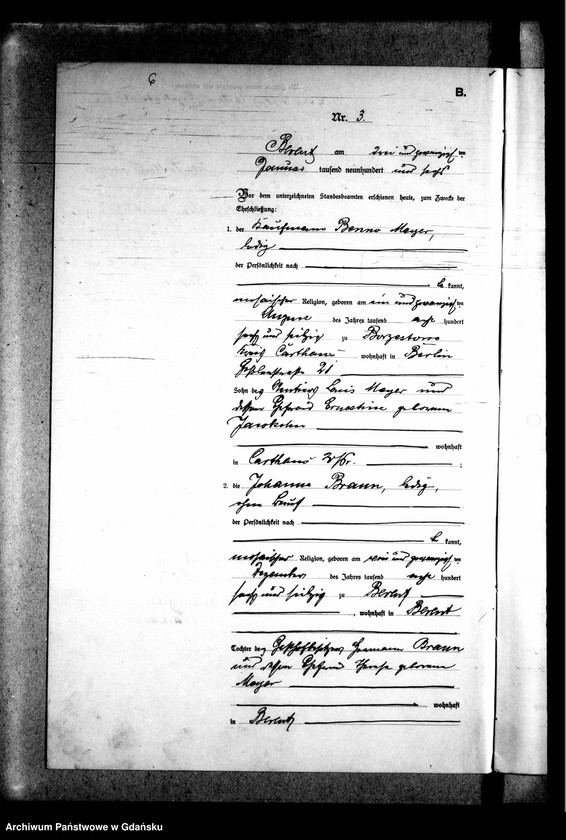 6
B.
Nr. 3.
Berent am drei und zwanzigsten
Januar tausend neunhundert und sechs
Vor dem unterzeichneten Standesbeamten erschienen heute, zum Zwecke der
Eheschließung:
1. der Kaufmann Benno Meyer,
ledig
der Persönlichkeit nach
be kannt,
mosaischer Religion, geboren am ein und zwanzigsten
August des Jahres tausend acht hundert
sechs und siebzig zu Borzestowo
Kreis Carthaus wohnhaft in Berlin
21
Sohn des Rentiers Louis Meyer und
dessen Ehefrau Ernestine geborenen
Jacobsohn
wohnhaft
in Carthaus W/Pr. ;
2. die Johanna Braun, ledig,
ohne Beruf
der Persönlichkeit nach
be kannt,
mosaischer Religion, geboren am und zwanzigsten
Dezember des Jahres tausend acht hundert
sechs und siebzig zu Berent
, wohnhaft in Berent
Tochter des Hermann Braun
und Ehefrau geborenen
Meyer
wohnhaft
in Berent
Archiwum Państwowe w Gdańsku